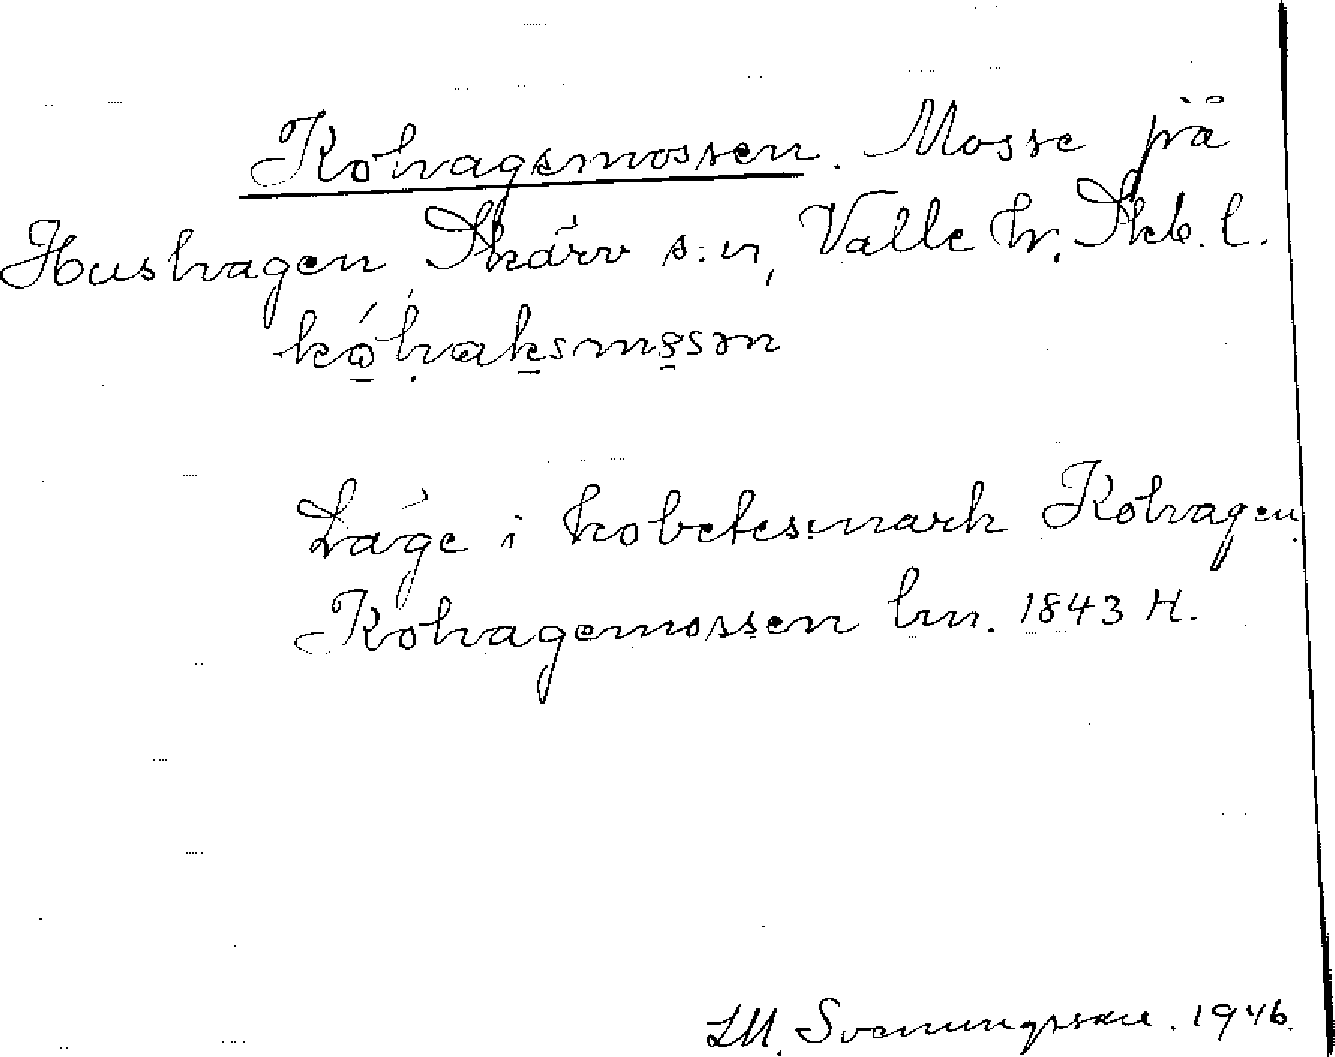 Kohagsmossen. Mosse på
Hushagen, Skärv s:n, Valle hr. Skb. l.
kóhaksmossən
Läge i kobetesmark Kohagen.
Kohagemossen lm. 1843 H.
Svenungsson. 1946.